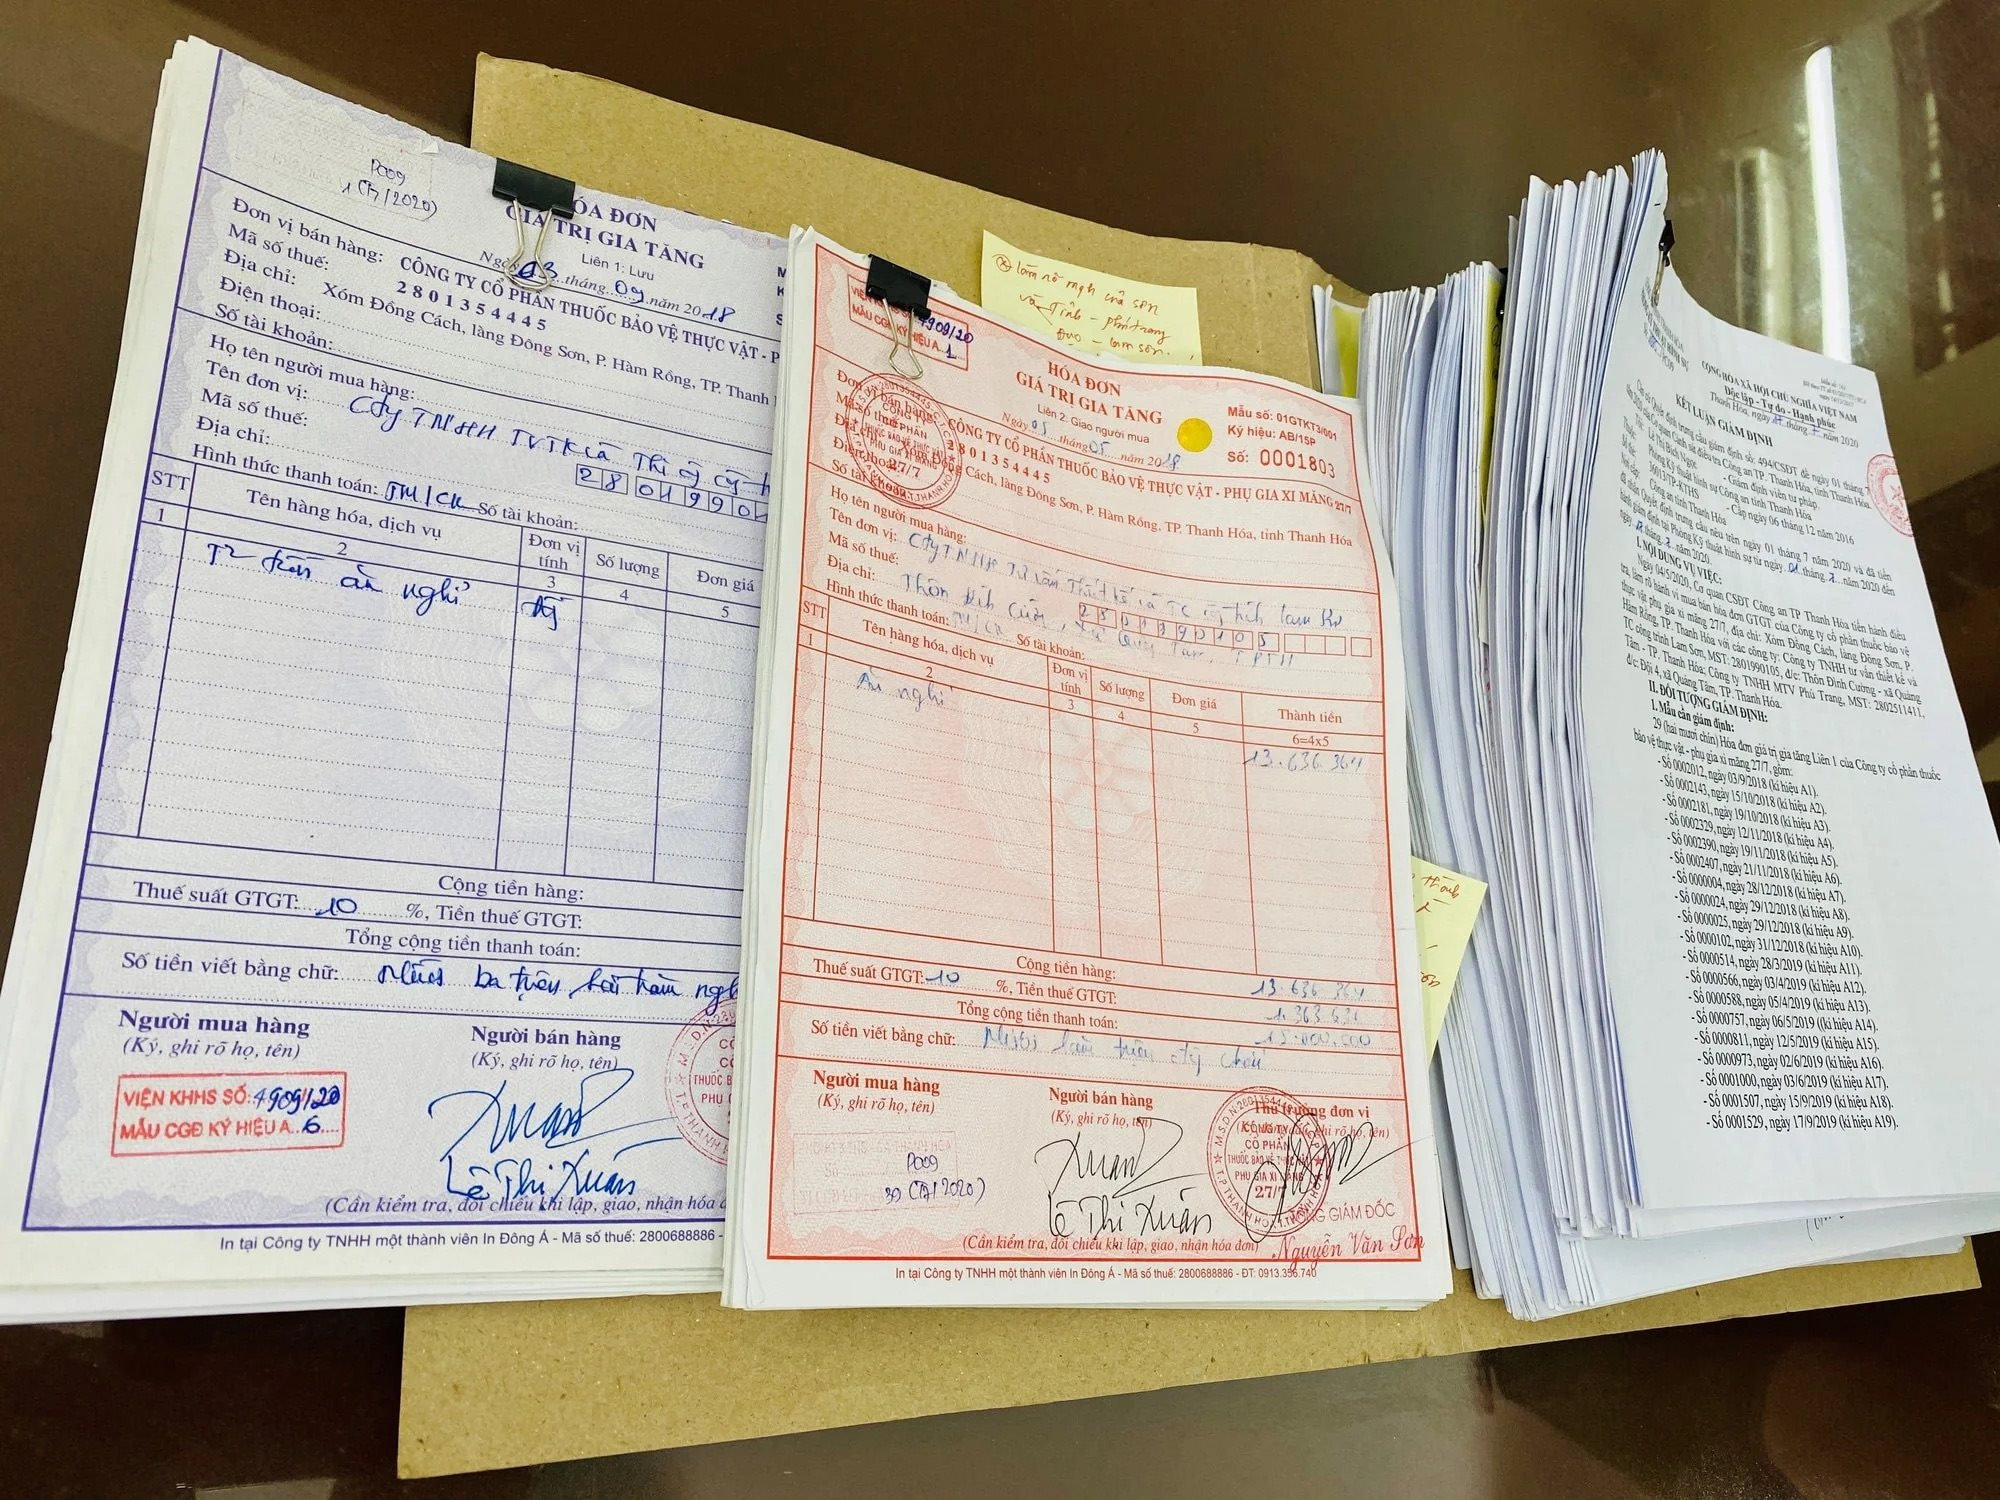 P009
1 (7/2020)
HÓA ĐƠN
GIÁ TRỊ GIA TĂNG
Liên 1: Lưu
Ngày 03 tháng 09 năm 2018
Đơn vị bán hàng: CÔNG TY CỔ PHẦN THUỐC BẢO VỆ THỰC VẬT - P
Mã số thuế: 2801354445
Địa chỉ: Xóm Đồng Cách, làng Đông Sơn, P. Hàm Rồng, TP. Thanh
Điện thoại:
Số tài khoản:
Họ tên người mua hàng:
Tên đơn vị: Cty TNHH TVTK và
Mã số thuế: 2801990
Địa chỉ:
Hình thức thanh toán: TM/CK Số tài khoản:
STT Tên hàng hóa, dịch vụ Đơn vị tính Số lượng Đơn giá
1 2 3 4 5
ăn nghỉ
Cộng tiền hàng:
Thuế suất GTGT: 10 %, Tiền thuế GTGT:
Tổng cộng tiền thanh toán:
Số tiền viết bằng chữ: Mười ba triệu hai trăm
Người mua hàng Người bán hàng
(Ký, ghi rõ họ, tên) (Ký, ghi rõ họ, tên)
VIỆN KHHS SỐ: 4909/20
MẪU CGĐ KÝ HIỆU A 6
Lê Thị Xuân
(Cần kiểm tra, đối chiếu khi lập, giao, nhận hóa đ
In tại Công ty TNHH một thành viên In Đông Á - Mã số thuế: 2800688886 -
VIỆN KHHS SỐ: 4909/20
MẪU CGĐ KÝ HIỆU A 1
HÓA ĐƠN
GIÁ TRỊ GIA TĂNG
Liên 2: Giao người mua
Ngày 05 tháng 05 năm 2018
Mẫu số: 01GTKT3/001
Ký hiệu: AB/15P
Số: 0001803
Đơn vị bán hàng: CÔNG TY CỔ PHẦN THUỐC BẢO VỆ THỰC VẬT - PHỤ GIA XI MĂNG 27/7
Mã số thuế: 2801354445
Địa chỉ: Xóm Đồng Cách, làng Đông Sơn, P. Hàm Rồng, TP. Thanh Hóa, tỉnh Thanh Hóa
Điện thoại:
Số tài khoản:
Họ tên người mua hàng:
Tên đơn vị: Cty TNHH Tư vấn Thiết kế và TC công trình Lam Sơn
Mã số thuế: 2801990105
Địa chỉ: Thôn Đình Cường, xã Quảng Tâm, TPTH
Hình thức thanh toán: TM/CK Số tài khoản:
STT Tên hàng hóa, dịch vụ Đơn vị tính Số lượng Đơn giá Thành tiền
1 2 3 4 5 6=4x5
Ăn nghỉ 13.636.364
Cộng tiền hàng: 13.636.364
Thuế suất GTGT: 10 %, Tiền thuế GTGT: 1.363.636
Tổng cộng tiền thanh toán: 15.000.000
Số tiền viết bằng chữ: Mười lăm triệu đồng chẵn
Người mua hàng Người bán hàng Thủ trưởng đơn vị
(Ký, ghi rõ họ, tên) (Ký, ghi rõ họ, tên) (Ký, đóng dấu, ghi rõ họ, tên)
P009
30 (7/2020)
CÔNG TY
CỔ PHẦN
THUỐC BẢO VỆ THỰC VẬT
PHỤ GIA XI MĂNG
27/7
Lê Thị Xuân
TỔNG GIÁM ĐỐC
Nguyễn Văn Sơn
(Cần kiểm tra, đối chiếu khi lập, giao, nhận hóa đơn)
In tại Công ty TNHH một thành viên In Đông Á - Mã số thuế: 2800688886 - ĐT: 0913.356.740
làm rõ mqh của Sơn
và Tỉnh - phú trang
Đào - Lam Sơn
CỘNG HÒA XÃ HỘI CHỦ NGHĨA VIỆT NAM
Độc lập - Tự do - Hạnh phúc
KẾT LUẬN GIÁM ĐỊNH
Căn cứ Quyết định trưng cầu giám định số: 494/CSĐT đề ngày 01 tháng 7
năm 2020 của Cơ quan Cảnh sát điều tra Công an TP. Thanh Hóa, tỉnh Thanh Hóa.
Tôi: Lê Thị Bích Ngọc - Giám định viên tư pháp.
Phòng Kỹ thuật hình sự Công an tỉnh Thanh Hóa
36013/TP-KTHS - Cấp ngày 06 tháng 12 năm 2016
Công an tỉnh Thanh Hóa
đã nhận Quyết định trưng cầu nêu trên ngày 01 tháng 7 năm 2020 và đã tiến
hành giám định tại Phòng Kỹ thuật hình sự từ ngày 01 tháng 7 năm 2020 đến
I. NỘI DUNG VỤ VIỆC:
Ngày 04/5/2020, Cơ quan CSĐT Công an TP Thanh Hóa tiến hành điều
tra, làm rõ hành vi mua bán hóa đơn GTGT của Công ty cổ phần thuốc bảo vệ
thực vật phụ gia xi măng 27/7, địa chỉ: Xóm Đồng Cách, làng Đông Sơn, P.
Hàm Rồng, TP. Thanh Hóa với các công ty: Công ty TNHH tư vấn thiết kế và
TC công trình Lam Sơn, MST: 2801990105, đ/c: Thôn Đình Cường - xã Quảng
Tâm - TP. Thanh Hóa; Công ty TNHH MTV Phú Trang, MST: 2802511411,
đ/c: Đội 4, xã Quảng Tâm, TP. Thanh Hóa.
II. ĐỐI TƯỢNG GIÁM ĐỊNH:
1. Mẫu cần giám định:
29 (hai mươi chín) Hóa đơn giá trị gia tăng Liên 1 của Công ty cổ phần thuốc
bảo vệ thực vật - phụ gia xi măng 27/7, gồm:
- Số 0002012, ngày 03/9/2018 (kí hiệu A1).
- Số 0002143, ngày 15/10/2018 (kí hiệu A2).
- Số 0002181, ngày 19/10/2018 (kí hiệu A3).
- Số 0002329, ngày 12/11/2018 (kí hiệu A4).
- Số 0002390, ngày 19/11/2018 (kí hiệu A5).
- Số 0002407, ngày 21/11/2018 (kí hiệu A6).
- Số 0000004, ngày 28/12/2018 (kí hiệu A7).
- Số 0000024, ngày 29/12/2018 (kí hiệu A8).
- Số 0000025, ngày 29/12/2018 (kí hiệu A9).
- Số 0000102, ngày 31/12/2018 (kí hiệu A10).
- Số 0000514, ngày 28/3/2019 (kí hiệu A11).
- Số 0000566, ngày 03/4/2019 (kí hiệu A12).
- Số 0000588, ngày 05/4/2019 (kí hiệu A13).
- Số 0000757, ngày 06/5/2019 (kí hiệu A14).
- Số 0000811, ngày 12/5/2019 (kí hiệu A15).
- Số 0000973, ngày 02/6/2019 (kí hiệu A16).
- Số 0001000, ngày 03/6/2019 (kí hiệu A17).
- Số 0001507, ngày 15/9/2019 (kí hiệu A18).
- Số 0001529, ngày 17/9/2019 (kí hiệu A19).